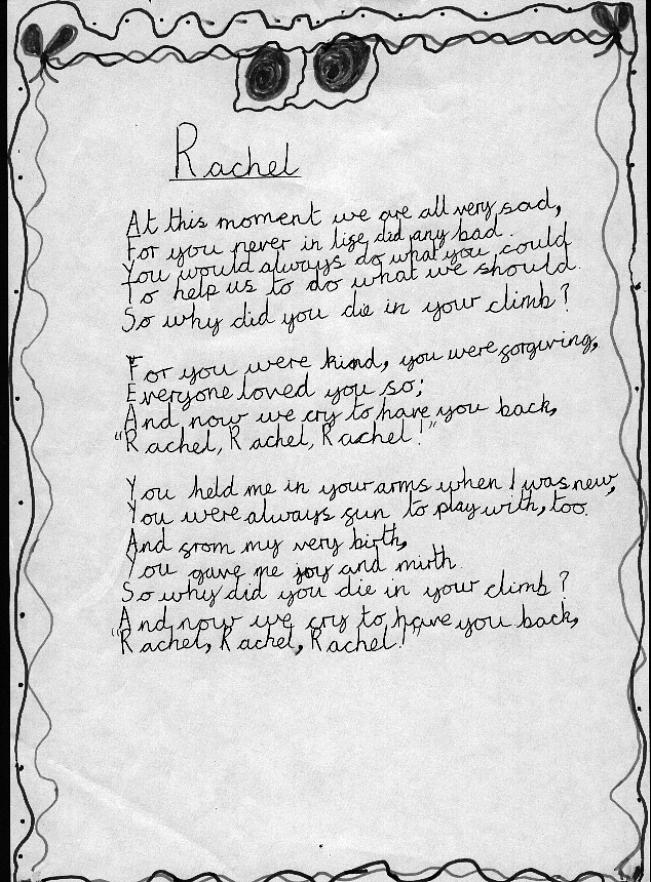 Rachel
At this moment we are all very sad,
For you never in life did any bad.
You would always do what you could
To help us to do what we should.
So why did you die in your climb?
For you were kind, you were forgiving,
Everyone loved you so;
And now we cry to have you back,
"Rachel, Rachel, Rachel!"
You held me in your arms when I was new,
You were always fun to play with, too.
And from my very birth,
You gave me joy and mirth.
So why did you die in your climb?
And now we cry to have you back,
"Rachel, Rachel, Rachel!"